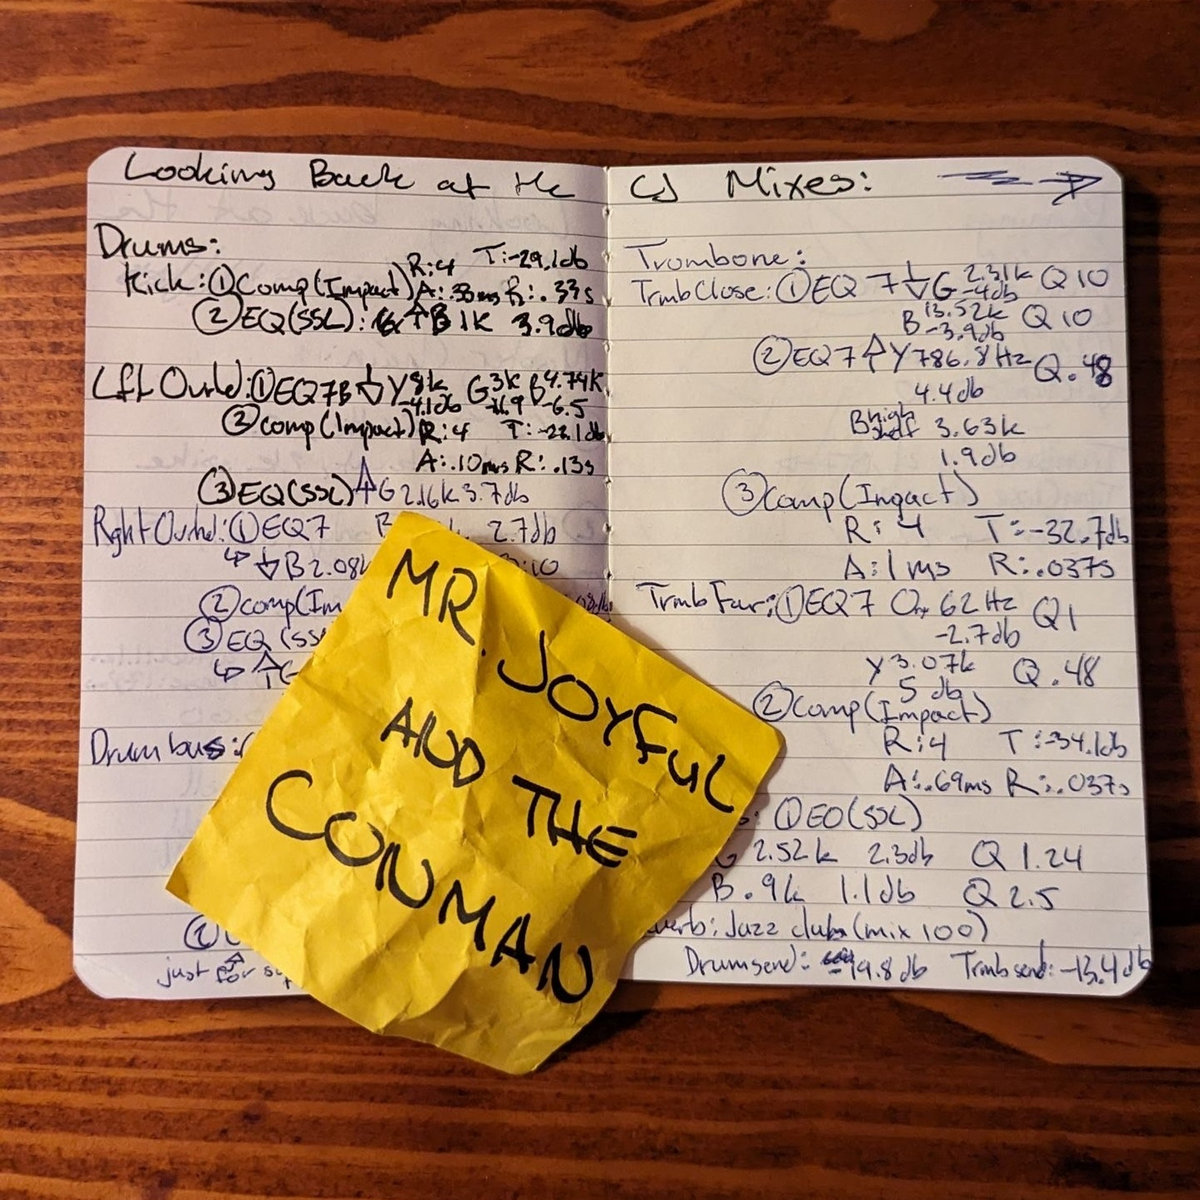 Looking Back at the
Drums:
Kick: ① Comp (Impact) R:4 T:-29.1db
A:.33ms R:.33s
② EQ(SSL): ↑B 1K 3.9db
Lft Ovrhd: ① EQ7B ↓ Y 8k G 3k B 4.74K
-4.1db -6.5
② comp(Impact) R:4 T:-22.1db
A:.10ms R:.13s
③ EQ(SSL) ↑ G 2.16k 3.7db
Rght Ovrhd: ① EQ7 2.7db
↳ ↓ B 2.08k
② comp(Im
③ EQ (SS
↳ ↑G
Drum bus:
②
just for
CJ Mixes: →
Trombone:
Trmb Close: ① EQ 7 ↓ G 2.31k Q 10
-4db
B 13.52k Q 10
-3.9db
② EQ7 ↑ Y 786.8Hz Q.48
4.4db
B high shelf 3.63k
1.9db
③ Comp (Impact)
R:4 T:-32.7db
A:1ms R:.037s
Trmb Far: ① EQ7 62Hz Q1
-2.7db
Y 3.07k Q.48
5 db
② Comp (Impact)
R:4 T:-34.1db
A:.69ms R:.037s
: ① EQ(SSL)
G 2.52k 2.3db Q 1.24
B .9k 1.1db Q 2.5
verb: Jazz club (mix 100)
Drum send: -19.8db Trmb send: -13.4db
MR. JOYFUL
AND THE
CONMAN